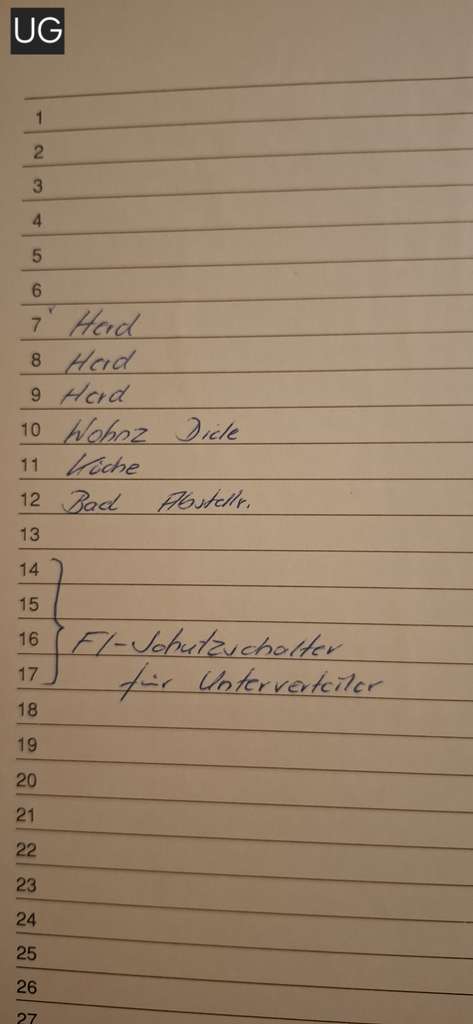 UG
1
2
3
4
5
6
7 Herd
8 Herd
9 Herd
10 Wohnz Diele
11 Küche
12 Bad Abstellr.
13
14
15
16 FI-Schutzschalter
17 für Unterverteiler
18
19
20
21
22
23
24
25
26
27